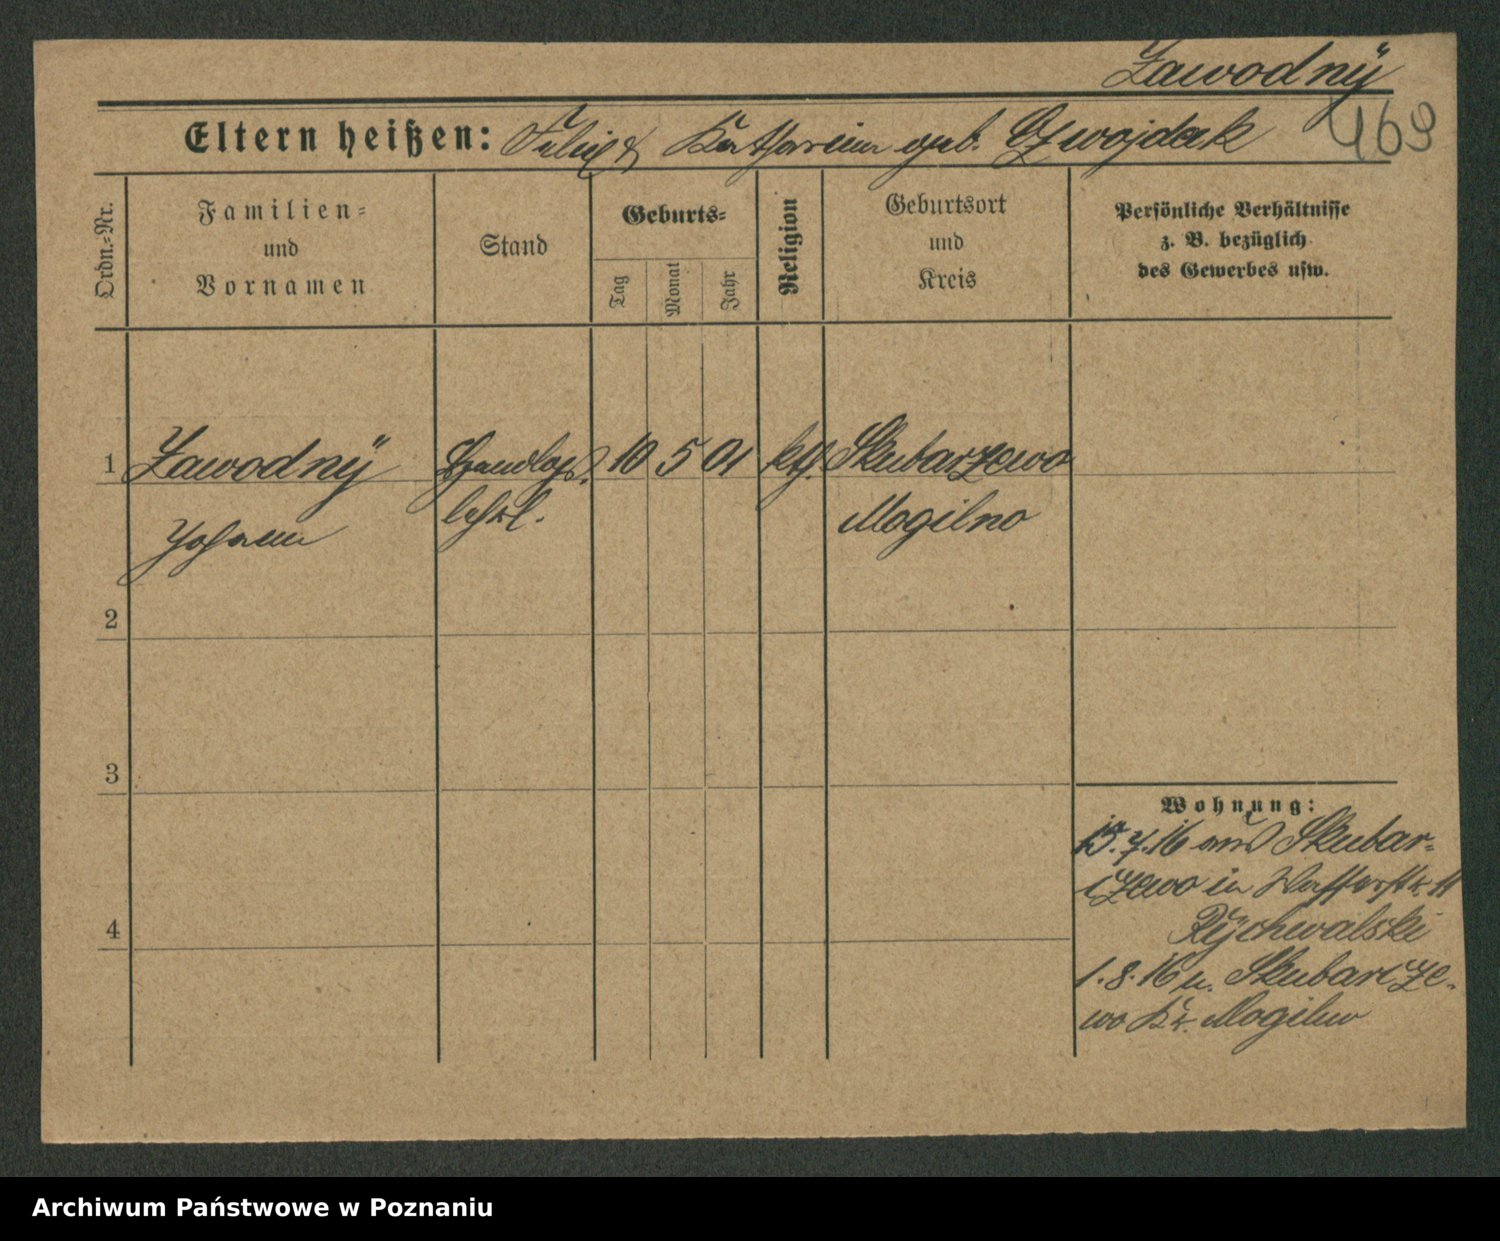 Zawodnÿ
469
Eltern heißen: Felix & Katharina geb. Czwojdak
Ordn.-Nr.
Familien-
und
Vornamen
Stand
Geburts-
Tag
Monat
Jahr
Religion
Geburtsort
und
Kreis
Persönliche Verhältnisse
z. B. bezüglich
des Gewerbes usw.
1 Zawodnÿ Handlgs. 10 5 01 kth. Skubarzewo
Johann lehrl. Mogilno
2
3
4
Wohnung:
15.7.16 aus Skubar-
czewo in Wasserstr. 11
Rÿchwalski
1.8.16 n. Skubarcze-
wo Kr. Mogilno
Archiwum Państwowe w Poznaniu